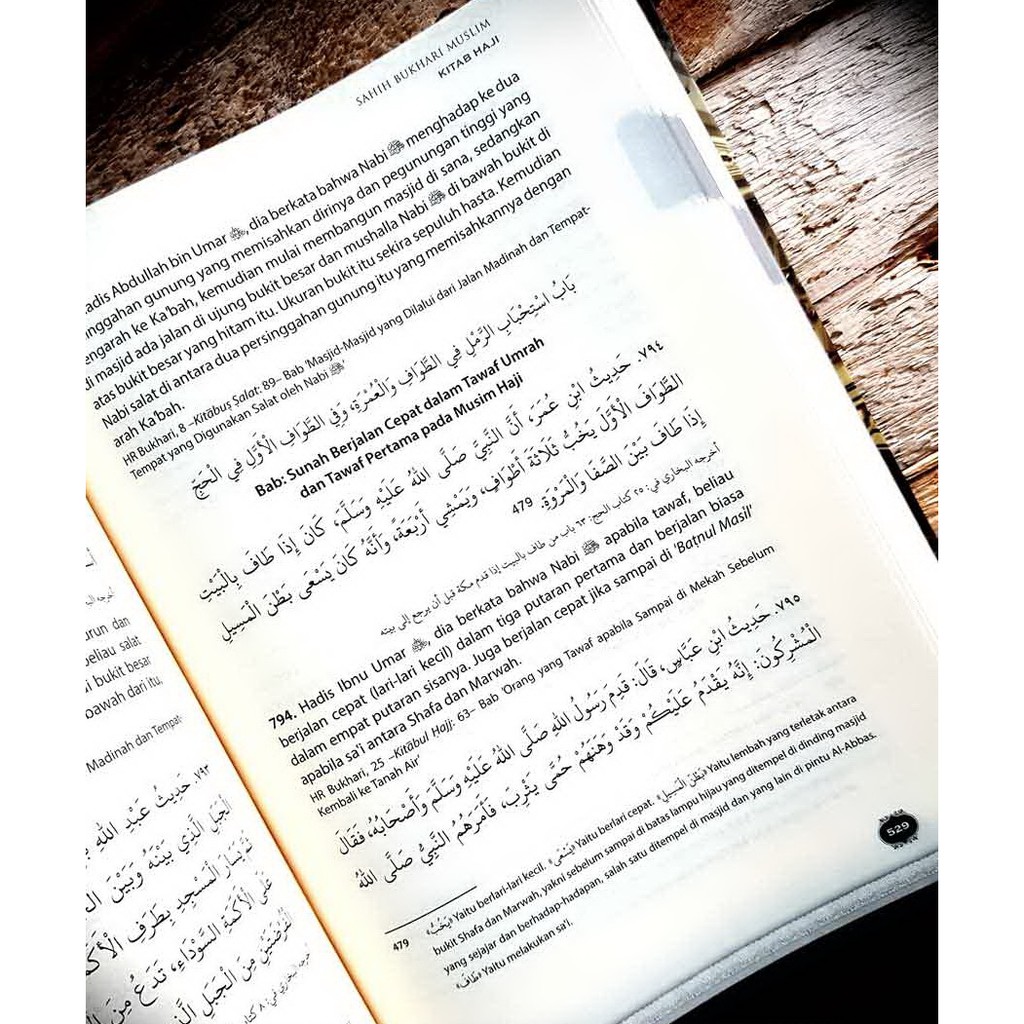 SAHIH BUKHARI MUSLIM
KITAB HAJI
adis Abdullah bin Umar ؓ, dia berkata bahwa Nabi ﷺ menghadap ke dua
nggahan gunung yang memisahkan dirinya dan pegunungan tinggi yang
engarah ke Ka'bah, kemudian mulai membangun masjid di sana, sedangkan
di masjid ada jalan di ujung bukit besar dan mushalla Nabi ﷺ di bawah bukit di
atas bukit besar yang hitam itu. Ukuran bukit itu sekira sepuluh hasta. Kemudian
Nabi salat di antara dua persinggahan gunung itu yang memisahkannya dengan
arah Ka'bah.
HR Bukhari, 8 –Kitābuṣ Ṣalat: 89– Bab 'Masjid-Masjid yang Dilalui dari Jalan Madinah dan Tempat-
Tempat yang Digunakan Salat oleh Nabi ﷺ'
بَابُ اسْتِحْبَابِ الرَّمْلِ فِي الطَّوَافِ وَالْعُمْرَةِ، وَفِي الطَّوَافِ الْأَوَّلِ فِي الْحَجِّ
Bab: Sunah Berjalan Cepat dalam Tawaf Umrah
dan Tawaf Pertama pada Musim Haji
٧٩٤. حَدِيثُ ابْنِ عُمَرَ، أَنَّ النَّبِيَّ صَلَّى اللهُ عَلَيْهِ وَسَلَّمَ، كَانَ إِذَا طَافَ بِالْبَيْتِ
الطَّوَافَ الْأَوَّلَ يَخُبُّ ثَلَاثَةَ أَطْوَافٍ، وَيَمْشِي أَرْبَعَةً، وَأَنَّهُ كَانَ يَسْعَى بَطْنَ الْمَسِيلِ
إِذَا طَافَ بَيْنَ الصَّفَا وَالْمَرْوَةِ. 479
أخرجه البخاري في: ٢٥ كتاب الحج: ٦٣ باب من طاف بالبيت إذا قدم مكة قبل أن يرجع إلى بيته
794. Hadis Ibnu Umar ؓ, dia berkata bahwa Nabi ﷺ apabila tawaf, beliau
berjalan cepat (lari-lari kecil) dalam tiga putaran pertama dan berjalan biasa
dalam empat putaran sisanya. Juga berjalan cepat jika sampai di 'Baṭnul Masīl'
apabila sa'i antara Shafa dan Marwah.
HR Bukhari, 25 –Kitābul Ḥajj: 63– Bab 'Orang yang Tawaf apabila Sampai di Mekah Sebelum
Kembali ke Tanah Air'
٧٩٥. حَدِيثُ ابْنِ عَبَّاسٍ، قَالَ: قَدِمَ رَسُولُ اللهِ صَلَّى اللهُ عَلَيْهِ وَسَلَّمَ وَأَصْحَابُهُ، فَقَالَ
الْمُشْرِكُونَ: إِنَّهُ يَقْدَمُ عَلَيْكُمْ وَقَدْ وَهَنَهُمْ حُمَّى يَثْرِبَ، فَأَمَرَهُمُ النَّبِيُّ صَلَّى اللهُ
479 «يَخُبُّ» Yaitu berlari-lari kecil. «يَسْعَى» Yaitu berlari cepat. «بَطْنَ الْمَسِيلِ» Yaitu lembah yang terletak antara
bukit Shafa dan Marwah, yakni sebelum sampai di batas lampu hijau yang ditempel di dinding masjid
yang sejajar dan berhadap-hadapan, salah satu ditempel di masjid dan yang lain di pintu Al-Abbas.
«طَافَ» Yaitu melakukan sa'i.
529
urun dan
beliau salat
i bukit besar
bawah dari itu.
Madinah dan Tempat-
٧٩٣. حَدِيثُ عَبْدِ اللهِ
الْجَبَلِ الَّذِي بَيْنَهُ وَبَيْنَ
ثُمَّ يَسَارَ الْمَسْجِدِ بِطَرَفِ
عَلَى الْأَكَمَةِ السَّوْدَاءِ، تَدَعُ مِنَ
الْفُرْضَتَيْنِ مِنَ الْجَبَلِ